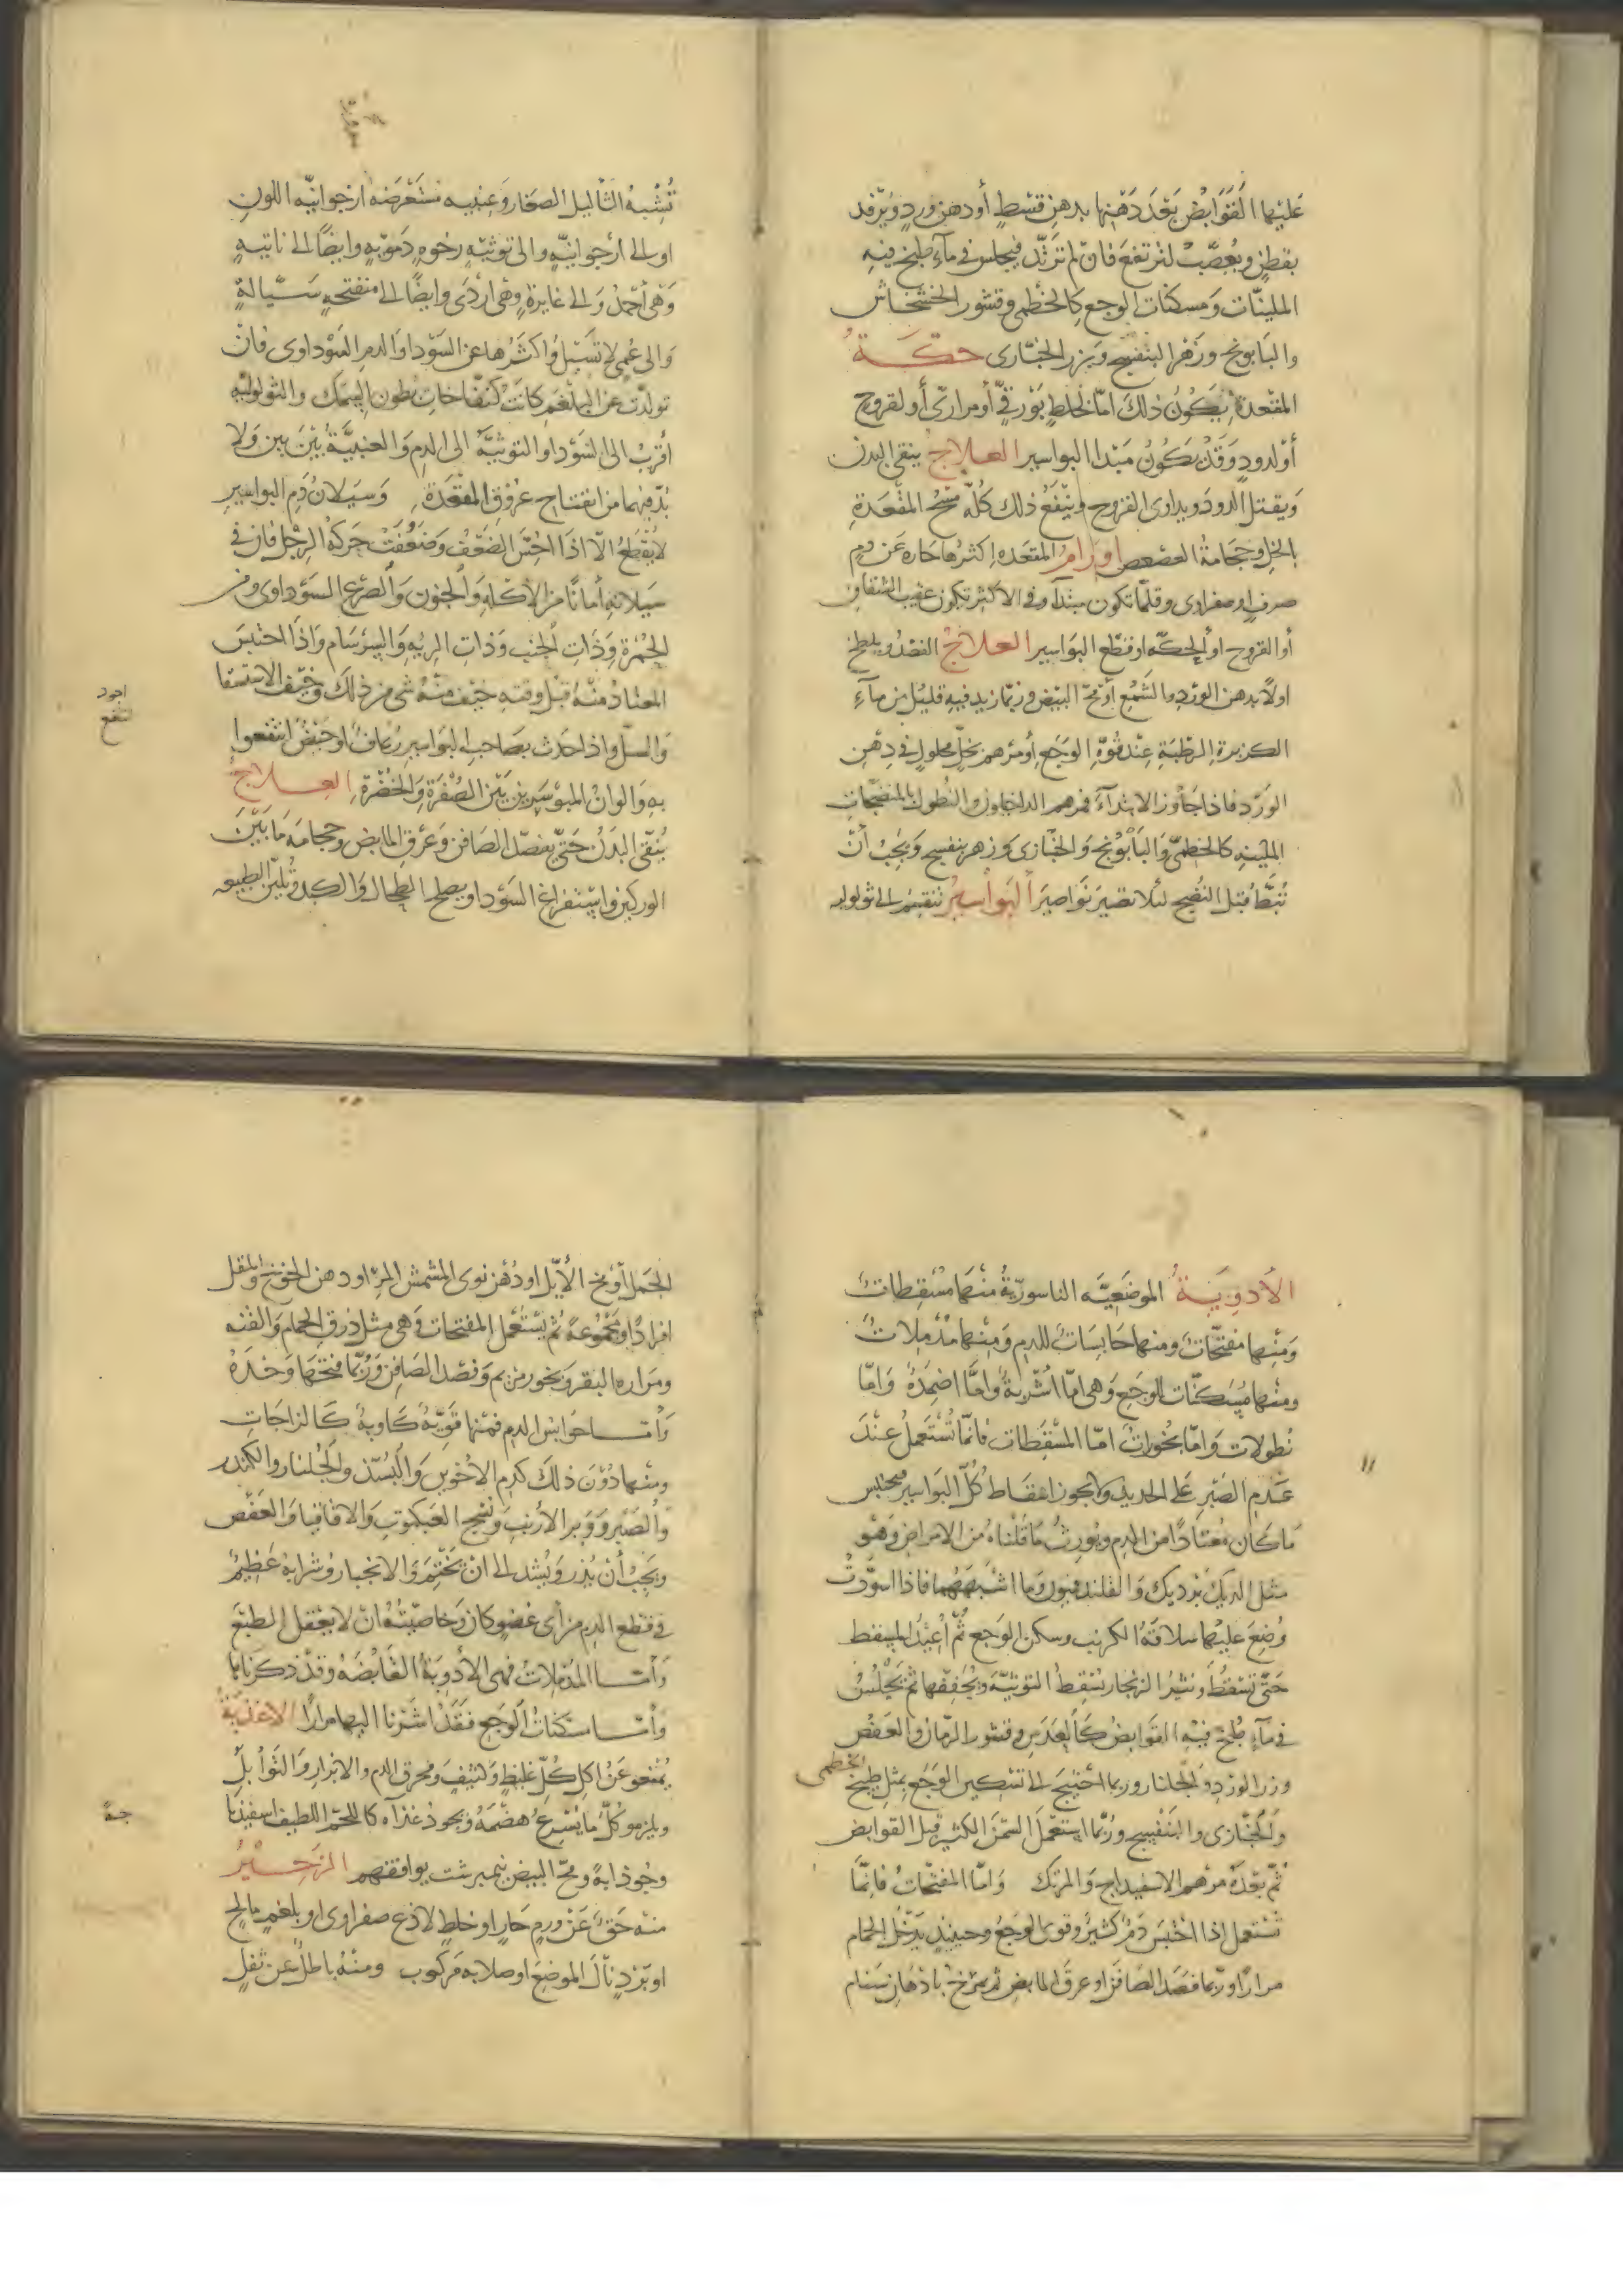 عَليْها القَوَابضُ بَعْدَ دَهْنِها بدهن قسْطٍ أودهن وردٍ ويُرفد
بقطنٍ ويُعصَّبُ لترتفعَ فَانْ لم تَرتَدّ فيجلس في مآءٍ طبخ فيهِ
الملينّات وَمسكنات الوجع كالخطمى وقشور الخشخاش
والبَابونج وزَهْر البنفسج وَبزر الخبّازى حكّةُ
المقْعدة يَكُونُ ذلكَ امّا لخلطٍ بَوْرقيٍّ أو مراريّ أو لقروحٍ
أو لدودٍ وَقَدْ يَكُونُ مَبْدا البواسير العلاج ينقى البدن
وَيقتل الدود ويداوى القروح وَينْفَعُ ذلك كُلّه مَسْحُ المقْعَدةِ
بالخل وحجَامةُ العصعص اورام المقعَده اكثرها حَاره عَن دمٍ
صرفٍ او صفراوى وقلّما تكون مبتدأه وفى الاكثر تكون عقيب الشقاق
أو القروح او الحكّه او قطْع البَواسير العلاجُ الفصْدُ ويلطخ
اولاً بدهن الورْدِ والشَمْع أوْ محّ البيْض وربّما زيد فيهِ قليْل من مآءِ
الكزبرة الرطْبَةِ عِنْد قُوّةِ الوجَع أو مرْهم بخلٍّ محلولٍ فى دهْنِ
الوَرْد فاذا جَاوز الابتدآءَ فمرهم الداخليون والنطول بالمنضجات
الملَينهِ كالخطمىّ وَالبَابُونج وَالخبّازى وَزهر بنفسج وَيجبُ أنْ
تَبطّ قَبْل النُضْج لئلا تصَيرَ نَواصيرَ البَواسيرُ تنقسم الى ثولوليه
تُشْبهُ الثآليل الصغار وَعنبيه مستَعْرَضه ارجوانيّه اللونِ
او الى ارجوانيّهٍ والى توثيّهٍ رخوهٍ دَمَويّهٍ وايضًا الى ناتيهٍ
وَهْى أحْمَدُ وَالى غايرةٍ وهْى أرْدَى وايضًا الى منفتحهٍ سَيّالةٍ
وَالى عُمْىٍ لا تَسيْلُ وَاكثَرُها عن السَوْدا وَالدم السَوْداوى فانْ
تولّدتْ عن البلغم كانتْ كنفّاخات بطون السّمك والثولوليّه
أقربُ الى السَوْدا والتوثيَّهُ الى الدم وَالعنبيَّةُ بَيْنَ بين وَلا
بُدّ فيهما من انفتاح عرُوقِ المقعَدة وَسَيَلانُ دم البواسيرِ
لا يُقطعُ الّا اذا احسّ الضَعف وَضَعُفَتْ حَركةُ الرجْل فان فى
سَيلانهِ أمانًا من الاكلهِ وَالجنون وَالصرع السَوْداوى ومن
الحُمْرة وَذَاتِ الجنب وَذاتِ الريه وَالسِرسَام وَاذَا احتبسَ
المعتادُ منْهُ قَبْل وقتهِ خيْف منْهُ شى من ذلكَ وَخيْف الاستسقا
وَالسلّ واذا حَدث بصَاحبِ البَواسير رُعافٌ او حَيْضُ انتفعوا
اجود
انتفع
بهِ وَالوانُ المبوْسَرين بَيْن الصُفْرَة وَالخُضْرَة العلاجُ
يُنَقّى البَدَنُ حَتّى بفصْد الصَافن وَعرْق المابض وحجامَة مَا بَيْنَ
الوركين واستفراغ السَوْدا ويصلح الطحال والكبد وتليّن الطبيعه
الأدْويَةُ الموضَعيَّه الناسوريّةُ منْهَا مُسْقطاتٌ
وَمنْها مفتّحاتُ ومنها حَابسَاتُ للدم وَمنْها مُدْملاتٌ
ومنْها مُسَكنّات الوجَعِ وَهى امّا اشْربةٌ وامَّا اضمدةٌ وَامّا
نُطولات وَامّا بخوراتٌ امّا المسْقطات فانمّا تُسْتَعملُ عنْدَ
عَدَم الصَبْرِ عَلى الحديد ولا يجوز اسْقَاط كُلّ البَواسير فيحتبس
مَا كَان مُعْتادًا من الدم ويُورثُ مَا قلْناهُ من الامراضِ وَهْو
مثل الديك بَرْديك وَالفلندفيون وَما اشْبَهَهُما فاذا اسوّدتْ
وُضِعَ عليْها سلاقَةُ الكرنب وسكن الوَجع ثُمّ أعيْدَ المسقط
حَتّى تَسْقطَ ونثرُ الزنجار يُسقطُ التوثيّة وَيُجَففها ثم يَجْلسُ
فى مآءٍ طُبخ فيْهِ القَوابضُ كالعَدَس وقشور الرمّان والعَفْص
وزر الورْدِ وَالجلنار وربما احْتيجَ الى تسْكين الوَجَع بمثْل طبيخ
الخطمى
وَالخبّازى والبنَفْسج ورُبّما استعْمل السمْنُ الكثير قبْل القَوابض
ثُمّ بَعْدَهُ مَرْهم الاسفيداج وَالمرْتك وَامّا المفتّحاتُ فَانمَّا
تسْتعمل اذا احْتَبَسَ دمٌ كثيْرٌ وقوى الوجَعُ وحينئذٍ يَدْخُل الحمام
مرارًا وربّما فصَد الصَافنَ او عرقَ المابض ثم يمرّخ بادْهانِ سَنام
الجَمل أوْ مخ الأيّل او دُهْن نوى المشمش المرّ او دهن الخوخ والمقل
افرادًا او مَجْموعةً ثم يسْتَعْمل المفتحات وَهى مثل ذرق الحمام وَالقنّه
ومَراره البقر وبخور مريم وَفصْد الصَافن وَرُبّما فتحَها وَحْدَهُ
وَأمّا حوابس الدم فمنْها قويّةٌ كاويةٌ كَالزاجَاتِ
ومنْها دُوْنَ ذلكَ كدم الاخويْن وَالبُسّذ وَالجُلنار والكندر
وَالصَبْر وَوَبر الأرنب وَنَسْج العنكبوت وَالاقاقيا وَالعَفْص
ويَجبُ أنْ يُذر وَيُشد الى انْ يَخْتم وَالانجبار وشرابهُ عَظيْم
فى قطع الدم من أى عُضوٍ كان وَخاصيّتُهُ انْ لا يعْقل الطبْعَ
وَأمّا المدْملاتُ فهى الأدويَةُ القَابضَهُ وقدْ ذكرنَاها
وَأمّا مسَكنَاتُ الوَجَع فَقَدْ اشَرْنا اليها مرَارًا الاغذيَةُ
يُمْتنعوا عَنْ اكل كُلّ غليظٍ وَكثيفٍ ومحرق الدم والابزار وَالتَوابل
ويلزمو كُلّ مَا يُسْرعُ هضْمهُ ويجود غذآوه كاللحم اللطيف اسفيذباجة
وجُوذابةً ومحّ البيض نيمبرشت يوافقهم الزَحيْرُ
منه حَقٌّ عَنْ ورمٍ حَارٍ او خلطٍ لاذع صفراوى او بلغمٍ مالح
او بَرْدٍ نالَ الموضع او صلابه مَركوب ومنْهُ باطلٌ عن ثفلٍ